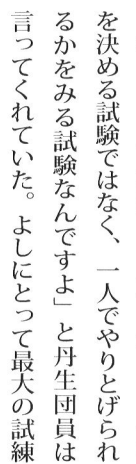 を決める試験ではなく、一人でやりとげられ
るかをみる試験なんですよ」と丹生団員は
言ってくれていた。よしにとって最大の試練